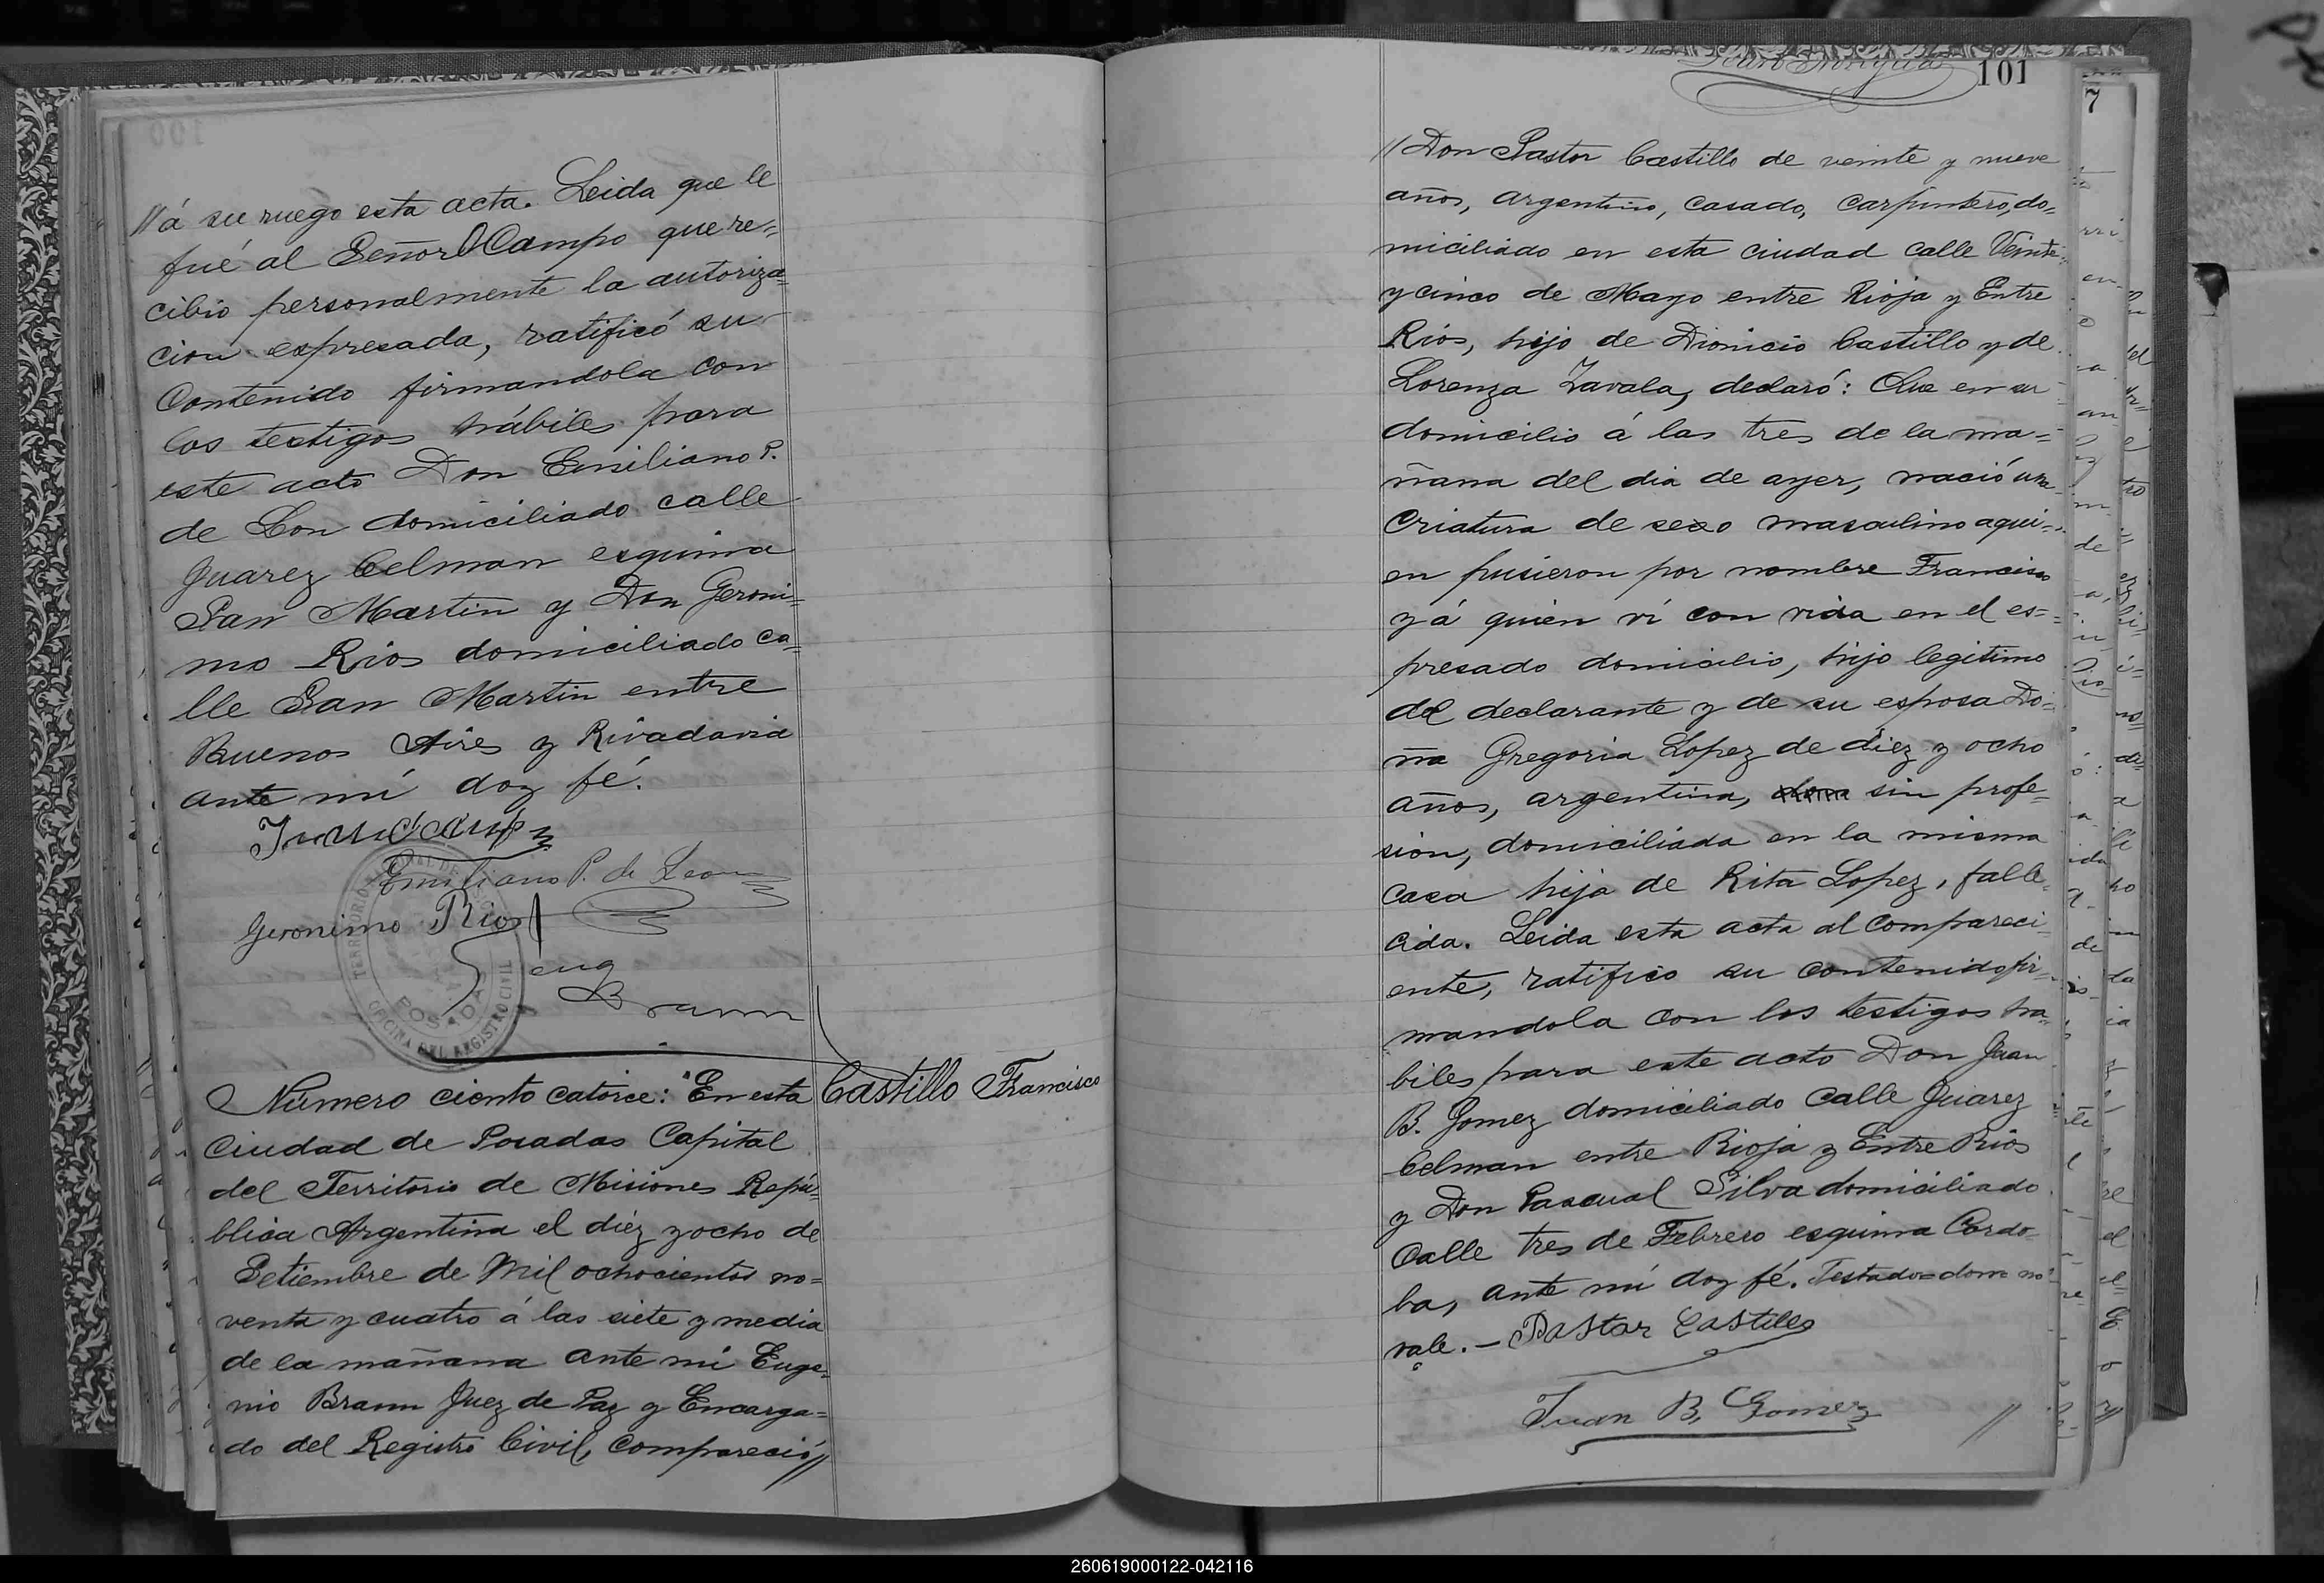 //á su ruego esta acta. Leida que le
fué al Señor OCampo que re=
cibio personalmente la autoriza=
cion espresada, ratificó su
Contenido firmandola con
los testigos hábiles para
este acto Don Emiliano P.
de Leon domiciliado calle
Juarez Celman esquina
San Martin y Don Geroni=
mo Rios domiciliado ca=
lle San Martin entre
Buenos Aires y Rivadavia
ante mi doy fé.
Emiliano P. de Leon
Geronimo Rios
Eug Braun
OFICINA DEL REGISTRO CIVIL
POSADAS
Número ciento catorce: "En esta
Castillo Francisco
Ciudad de Posadas Capital
del Territorio de Misiones Repú=
blica Argentina el diez y ocho de
Setiembre de Mil ochocientos no=
venta y cuatro á las siete y media
de la mañana ante mi Euge=
nio Braun Juez de Paz y Encarga=
do del Registro Civil, Compareció//
101
7
//Don Pastor Castillo de veinte y nueve
años, argentino, casado, carpintero, do=
miciliado en esta ciudad calle Veinte
y cinco de Mayo entre Rioja y Entre
Rios, hijo de Dionicio Castillo y de
Lorenza Zavala, declaró: Que en su
domicilio á las tres de la ma=
ñana del dia de ayer, nació una
Criatura de sexo masculino aqui=
en pusieron por nombre Francisco
y á quien ví con vida en el es=
presado domicilio, hijo legitimo
del declarante y de su esposa Do=
ña Gregoria Lopez de diez y ocho
años, argentina, sin profe=
sion, domiciliada en la misma
casa hija de Rita Lopez, falle=
cida. Leida esta acta al Compareci=
ente, ratifico su contenido fir=
mandola con los testigos ha=
biles para este acto Don Juan
B. Gomez domiciliado Calle Juarez
Celman entre Rioja y Entre Rios
y Don Pascual Silva domiciliado
Calle tres de Febrero esquina Cordo=
ba, ante mi doy fé. Testado=dom no
vale.— Pastor Castillo
Juan B. Gomez
//
260619000122-042116